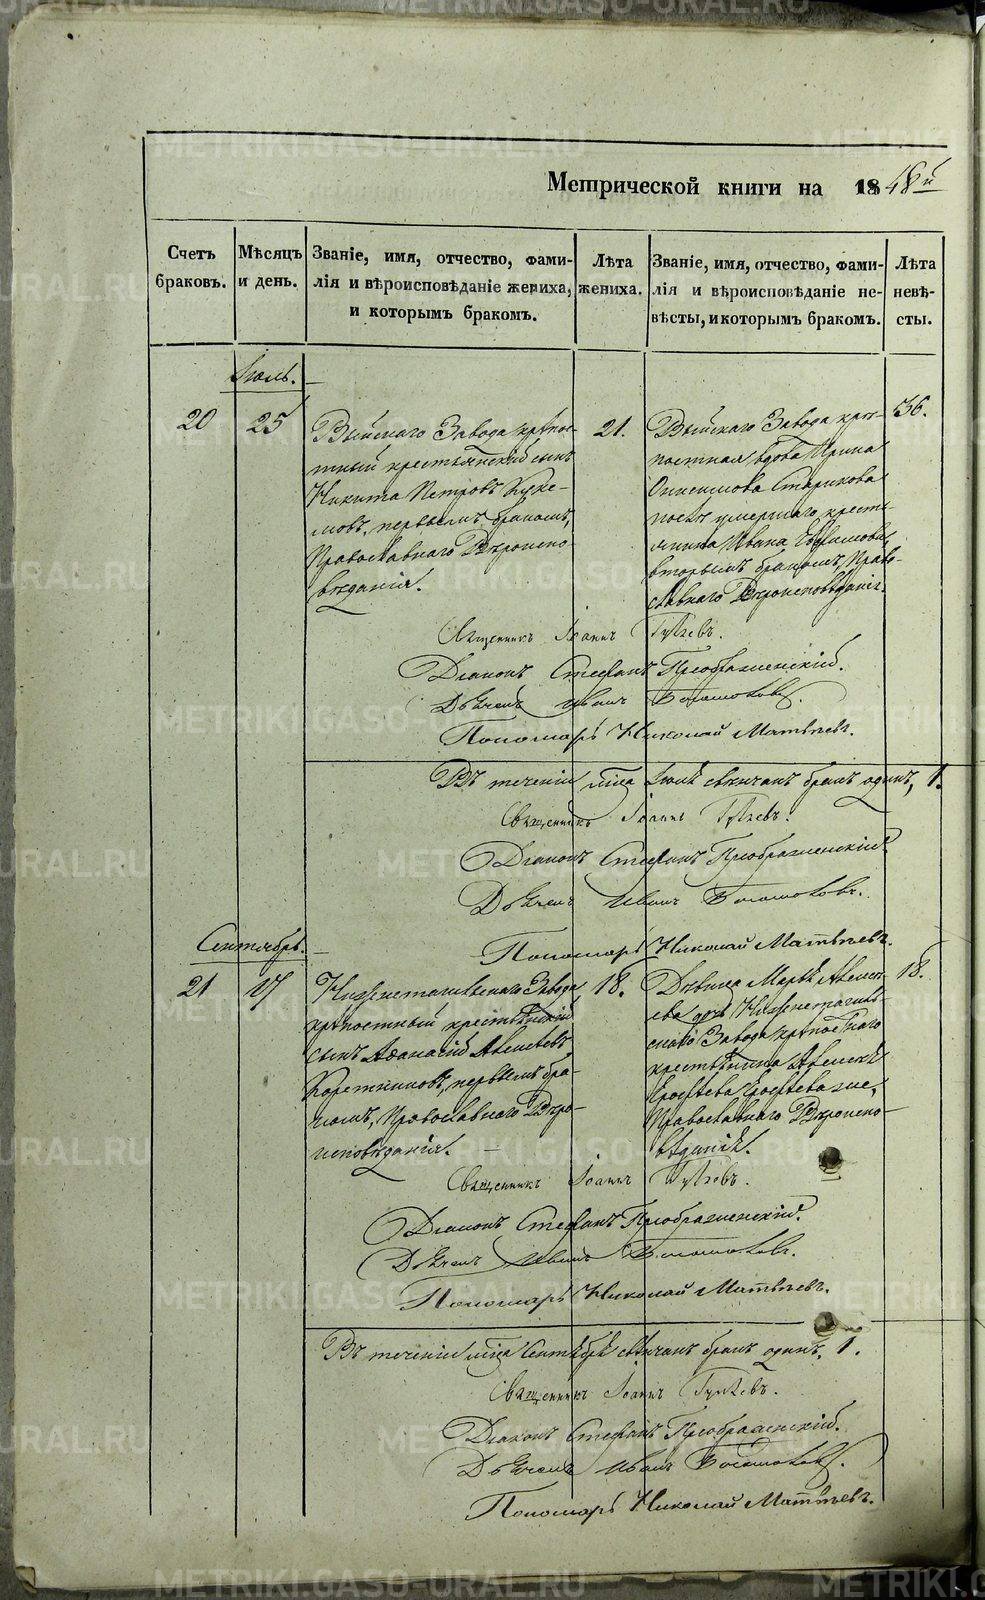 Метрической книги на 1848й
Счетъ браковъ.
Мѣсяцъ и день.
Званіе, имя, отчество, фами-
лія и вѣроисповѣданіе жениха,
и которымъ бракомъ.
Лѣта жениха.
Званіе, имя, отчество, фами-
лія и вѣроисповѣданіе не-
вѣсты, и которымъ бракомъ.
Лѣта невѣ-
сты.
Іюль.
20
25
Выйскаго Завода крѣпос-
тный крестьянскій сынъ
Никита Петровъ
первымъ бракомъ,
Православнаго Вѣроиспо-
вѣданія.
21.
Выйскаго Завода крѣ-
постная вдова Ирина
Онисимова Старикова
послѣ умершаго кресть-
янина Ивана
вторымъ бракомъ, Право-
славнаго Вѣроисповѣданія.
36.
Священникъ Іоаннъ
Діаконъ Стефанъ Преображенскій.
Дьячекъ Иванъ
Пономарь Николай Матвѣевъ.
Въ теченіи мѣца Іюля свѣнчанъ бракъ одинъ, 1.
Священникъ Іоаннъ
Діаконъ Стефанъ Преображенскій.
Дьячекъ Иванъ
Пономарь Николай Матвѣевъ.
Сентябрь.
21
17
Нижнетагильскаго Завода
крѣпостный крестьянскій
сынъ Афанасій Алексѣевъ
первымъ бра-
комъ, Православнаго Вѣро-
исповѣданія.
18.
Дѣвица Марья Алексѣ-
ева дочь Нижнетагиль-
скаго Завода крѣпостнаго
крестьянина Алексѣя
Православнаго Вѣроиспо-
вѣданія.
18.
Священникъ Іоаннъ
Діаконъ Стефанъ Преображенскій.
Дьячекъ Иванъ
Пономарь Николай Матвѣевъ.
Въ теченіи мѣца Сентября свѣнчанъ бракъ одинъ, 1.
Священникъ Іоаннъ
Діаконъ Стефанъ Преображенскій.
Дьячекъ Иванъ
Пономарь Николай Матвѣевъ.
METRIKI.GASO-URAL.RU